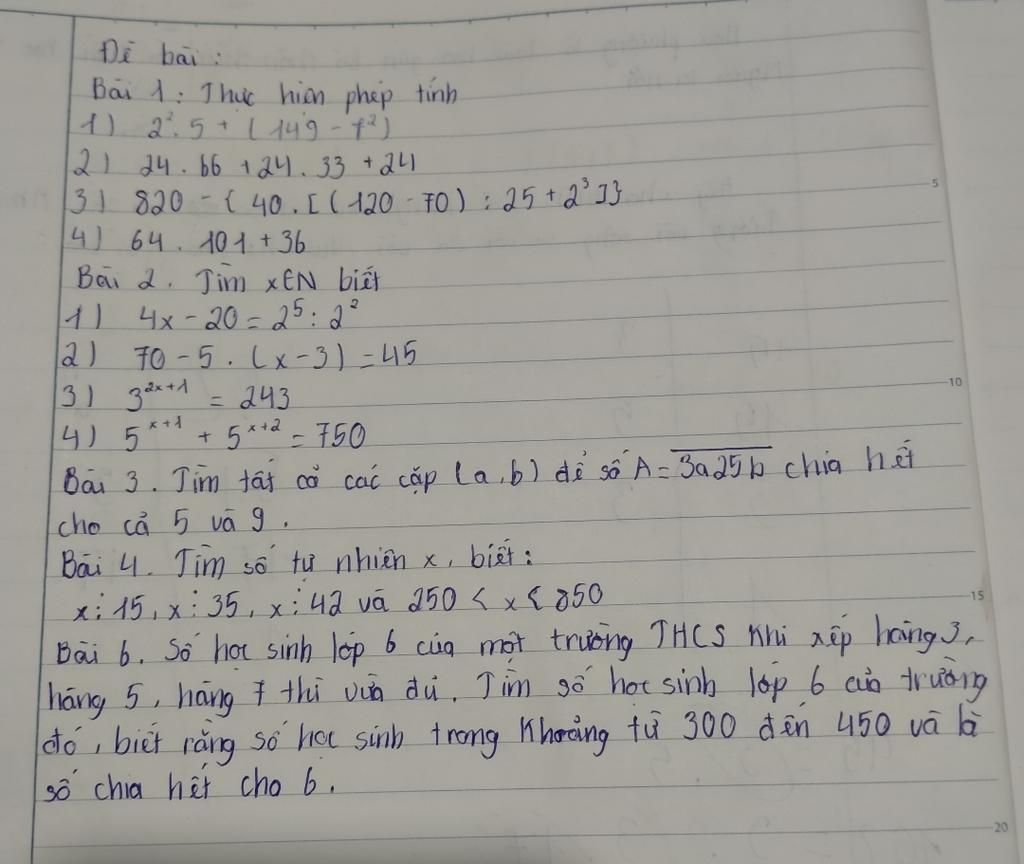 Đề bài:
Bài 1: Thực hiện phép tính
1) 2². 5 + (149 - 7²)
2) 24. 66 + 24. 33 + 24
3) 820 - { 40. [ (120 - 70) : 25 + 2³ ]}
4) 64. 101 + 36
Bài 2. Tìm x∈N biết
1) 4x - 20 = 2⁵ : 2²
2) 70 - 5. (x - 3) = 45
3) 3²ˣ⁺¹ = 243
4) 5ˣ⁺¹ + 5ˣ⁺² = 750
Bài 3. Tìm tất cả các cặp (a,b) để số A = 3a25b chia hết
cho cả 5 và 9.
Bài 4. Tìm số tự nhiên x, biết:
x⋮15, x⋮35, x⋮42 và 250 < x < 850
Bài 6. Số học sinh lớp 6 của một trường THCS khi xếp hàng 3,
hàng 5, hàng 7 thì vừa đủ. Tìm số học sinh lớp 6 của trường
đó, biết rằng số học sinh trong khoảng từ 300 đến 450 và là
số chia hết cho 6.
5
10
15
20